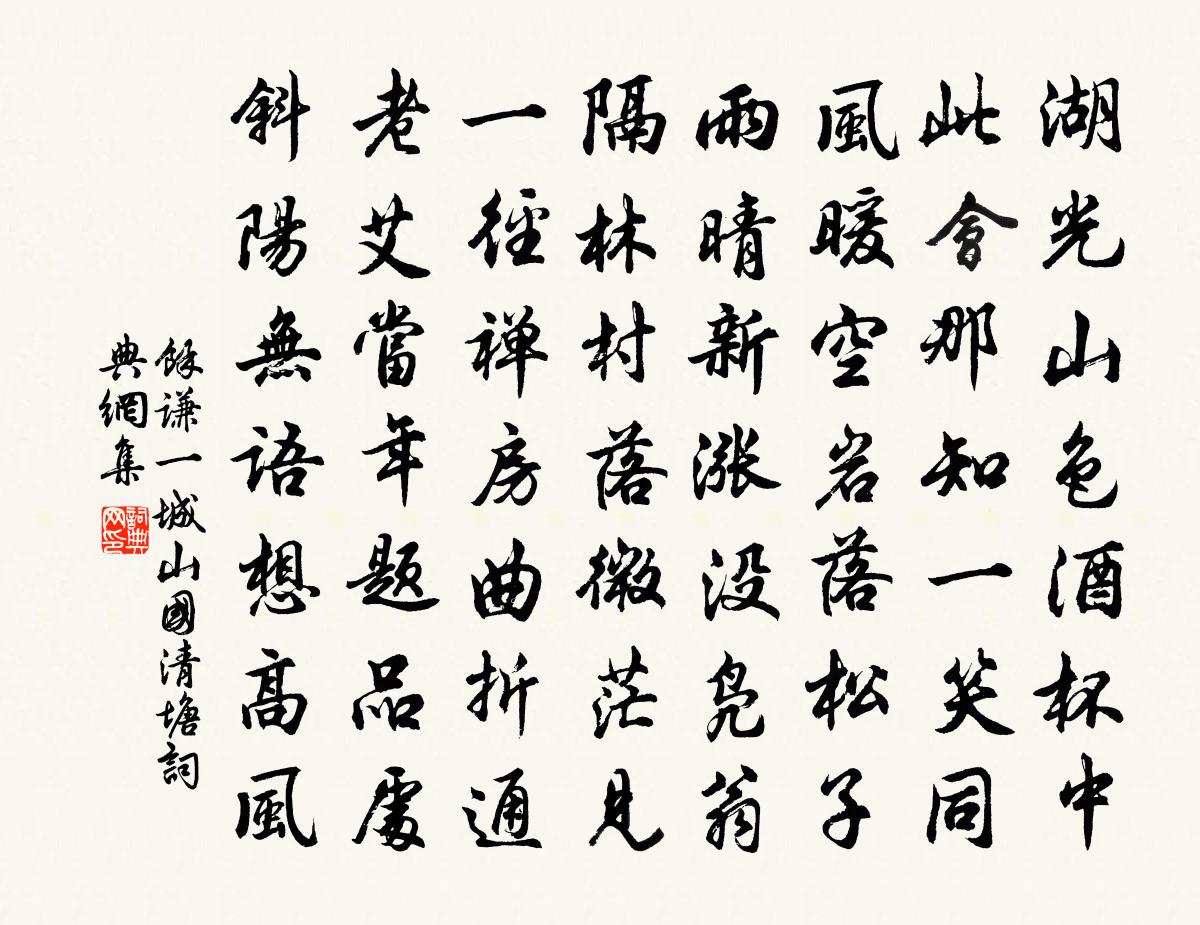 湖光山色酒杯中
此會那知一笑同
風暖空岩落松子
雨晴新漲没鳧翁
隔林村落微茫見
一徑禅房曲折通
老艾當年题品處
斜陽無語想高風
餘謙一城山國清塘詞
典網集
詞典
网印